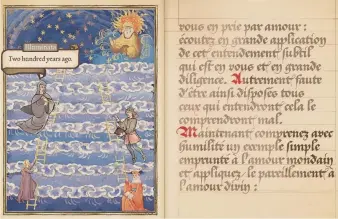 Illuminata
Two hundred years ago.
vous en prie par amour :
écoutez en grande application
de cet entendement subtil
qui est en vous et en grande
diligence. Autrement faute
d'être ainsi disposés tous
ceux qui entendront cela le
comprendront mal.
Maintenant comprenez avec
humilité un exemple simple
emprunté à l'amour mondain
et appliquez-le pareillement à
l'amour divin :